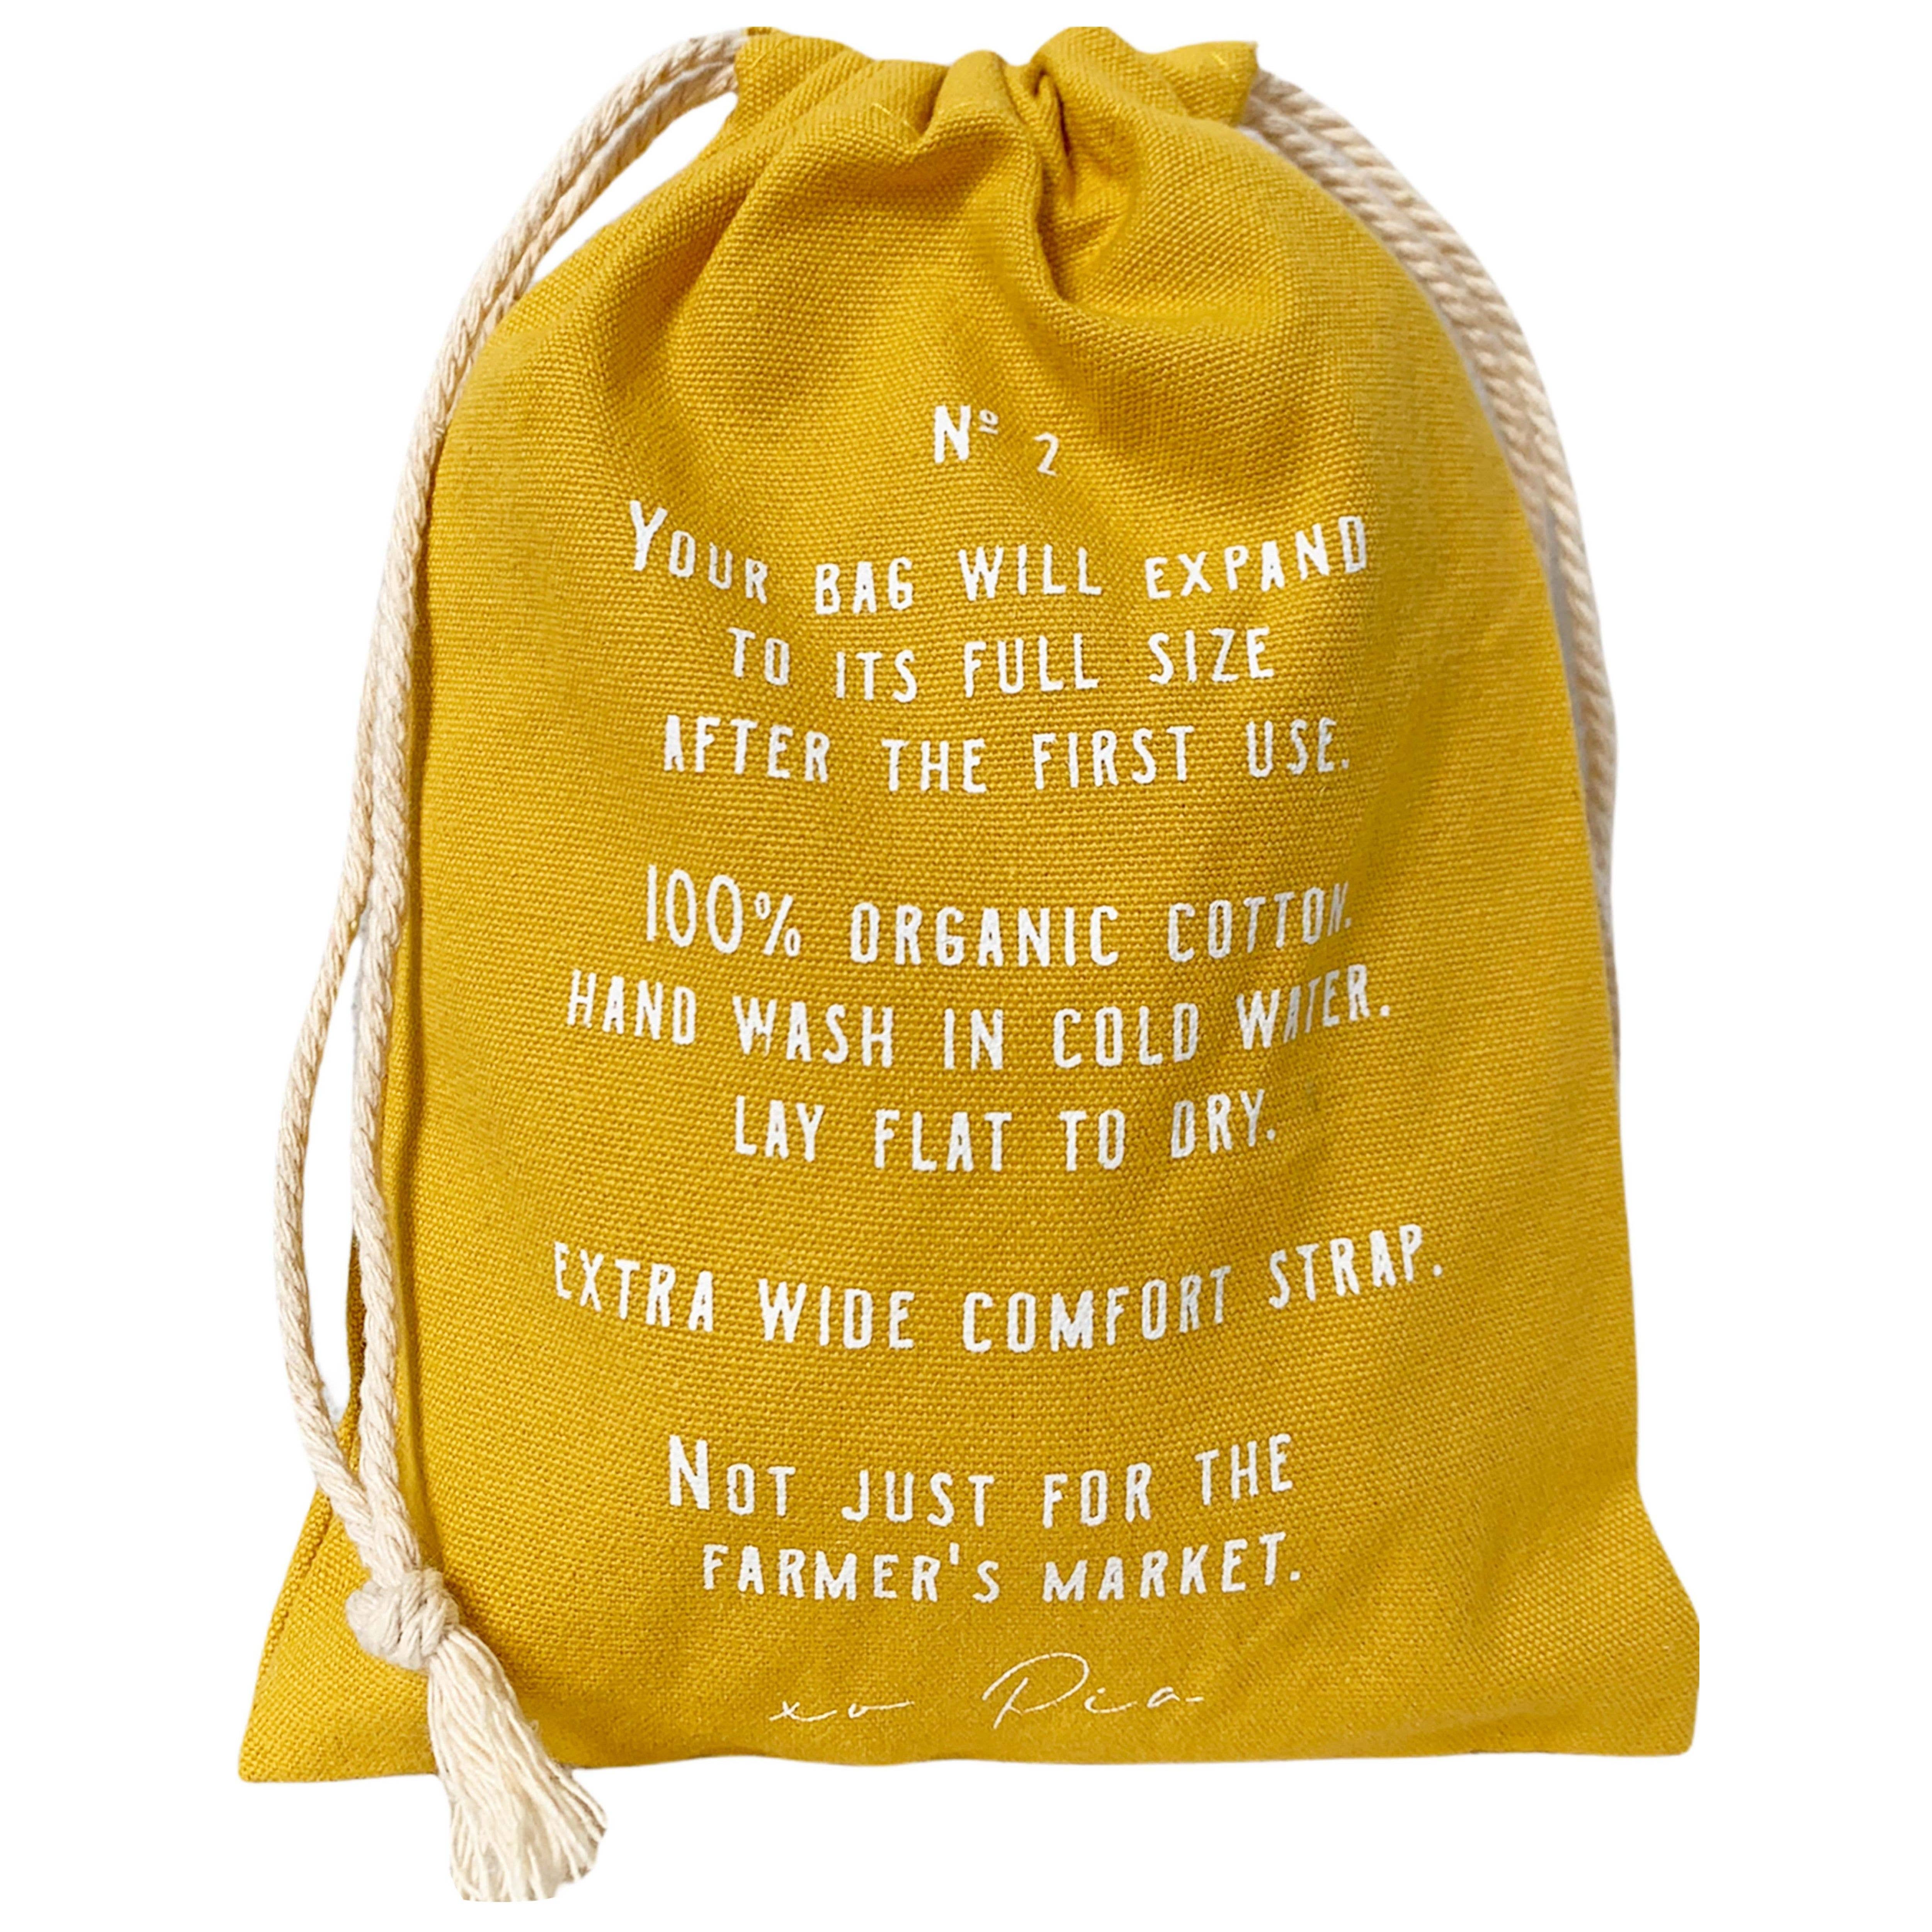 Nº 2
YOUR BAG WILL EXPAND
TO ITS FULL SIZE
AFTER THE FIRST USE.
100% ORGANIC COTTON.
HAND WASH IN COLD WATER.
LAY FLAT TO DRY.
EXTRA WIDE COMFORT STRAP.
NOT JUST FOR THE
FARMER'S MARKET.
xo Pia